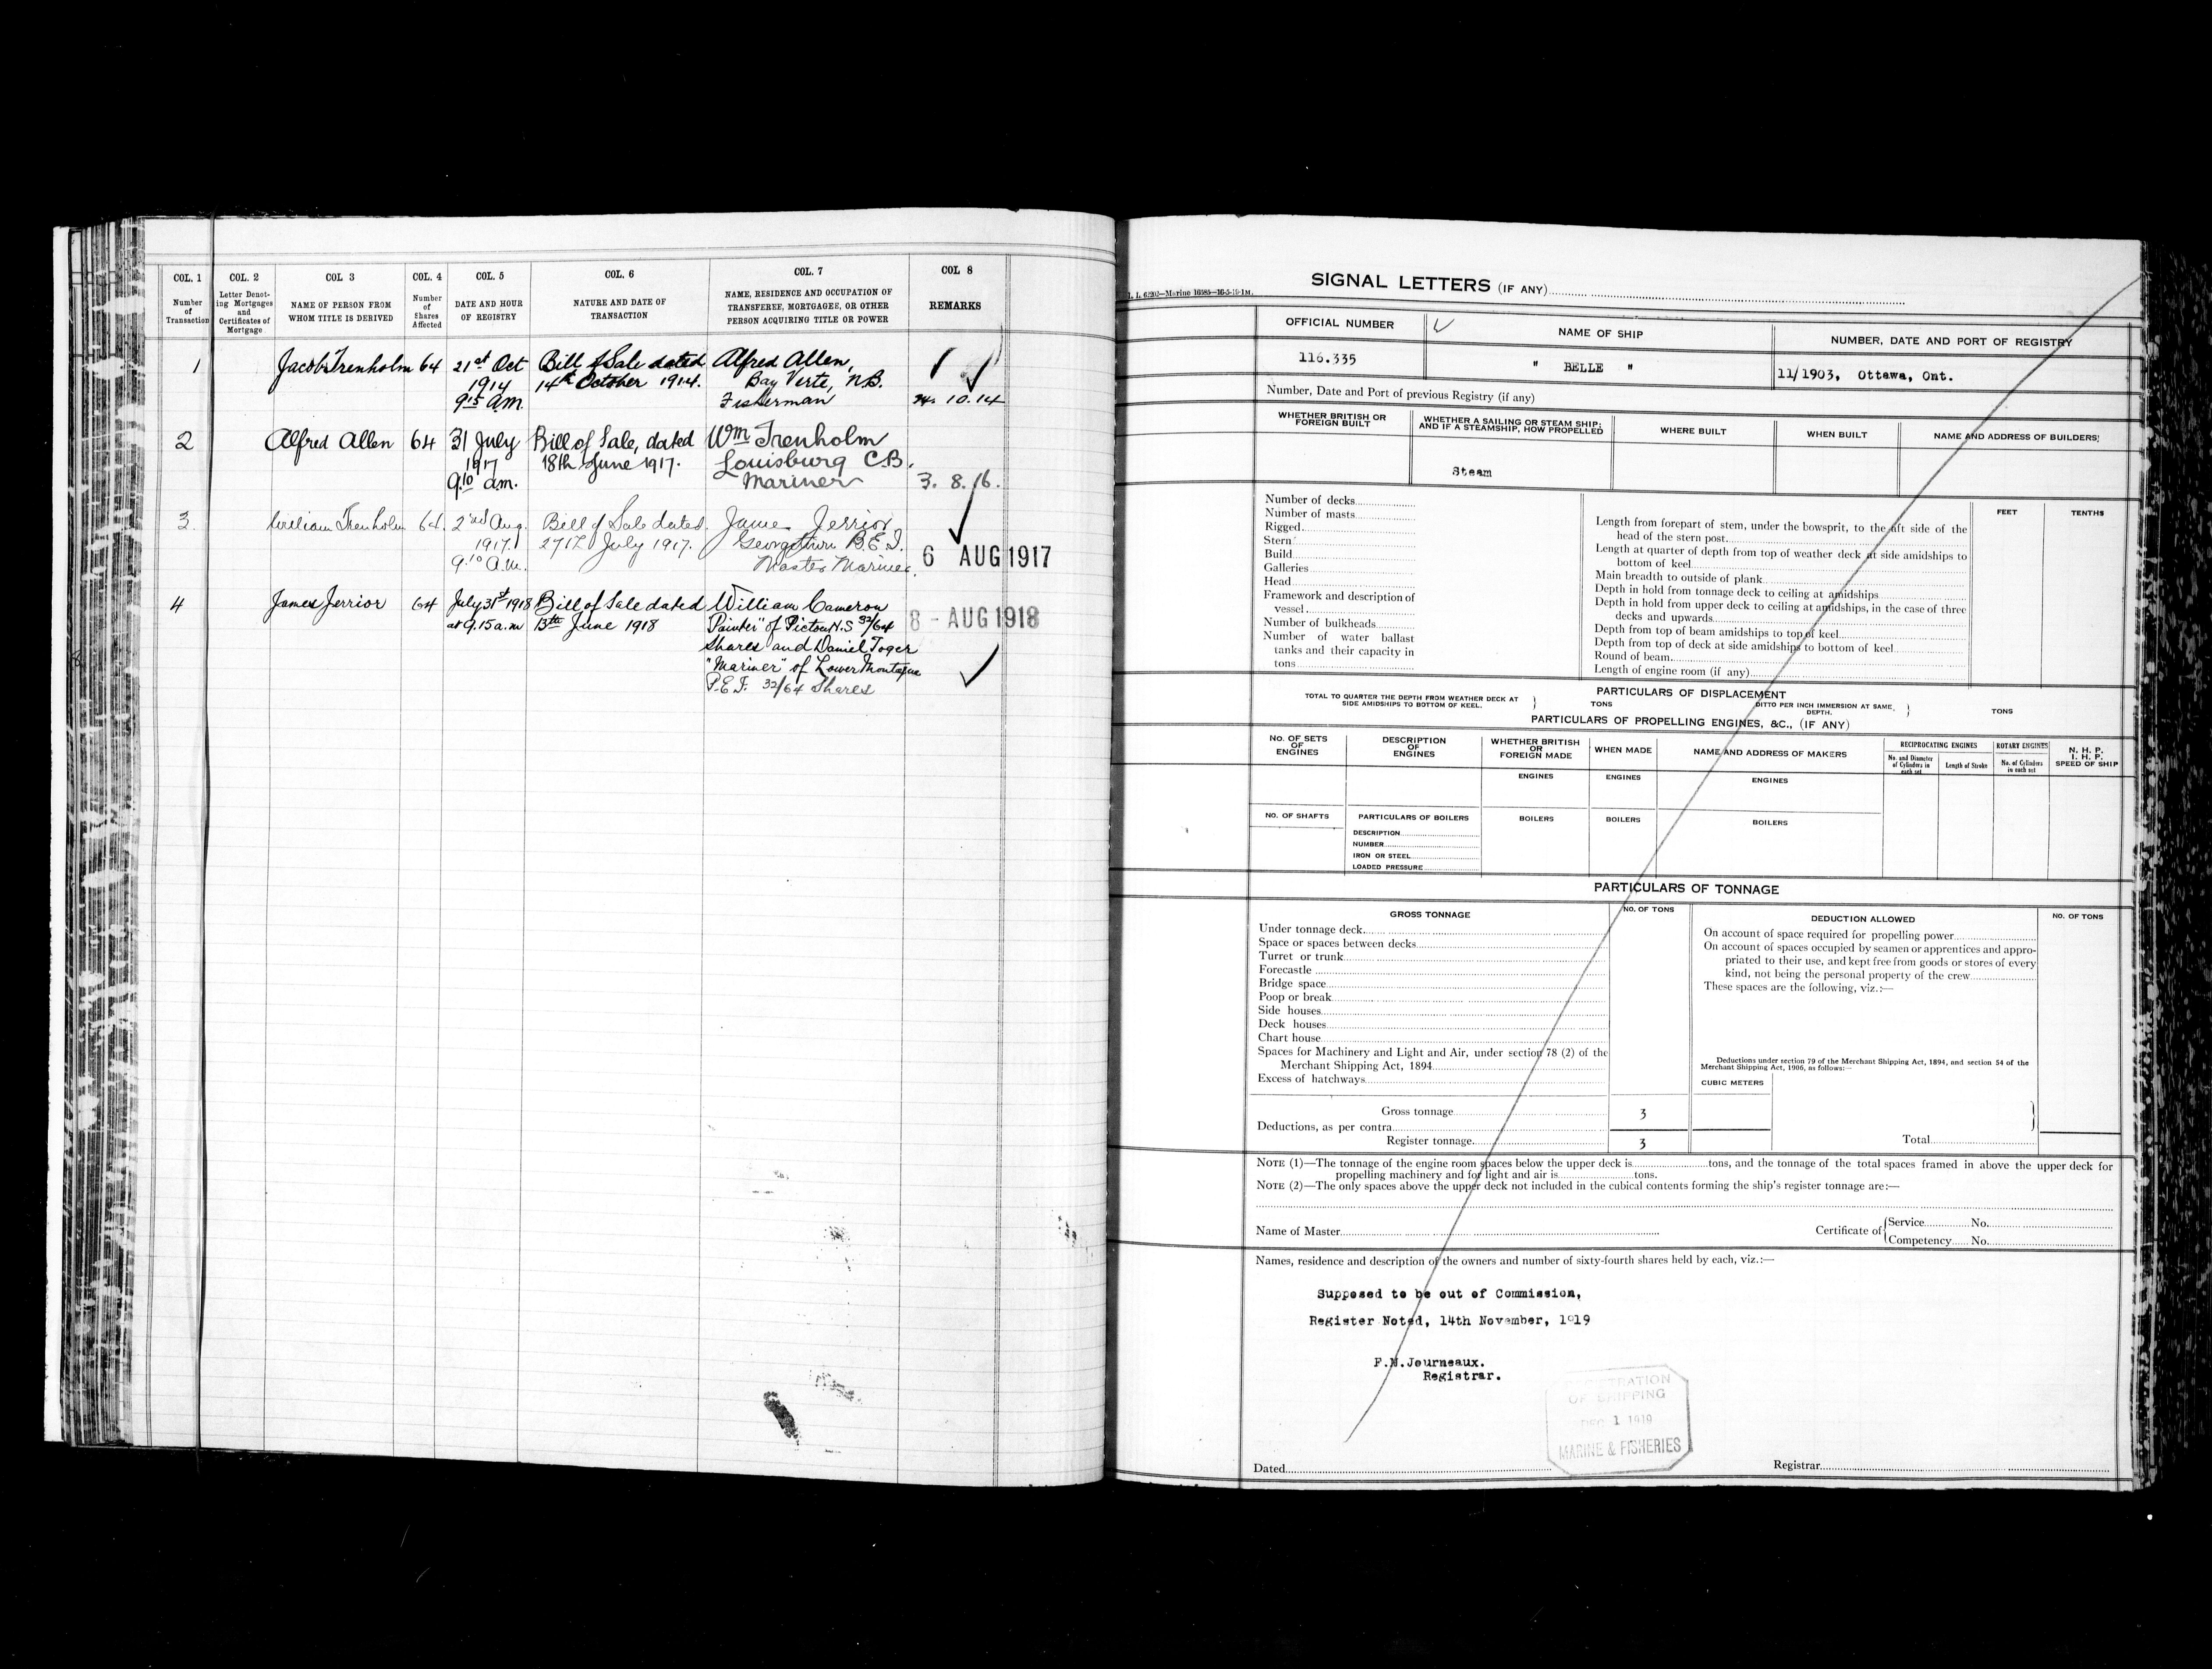 COL. 1
Number
of
Transaction
COL. 2
Letter Denot-
ing Mortgages
and
Certificates of
Mortgage
COL. 3
NAME OF PERSON FROM
WHOM TITLE IS DERIVED
COL. 4
Number
of
Shares
Affected
COL. 5
DATE AND HOUR
OF REGISTRY
COL. 6
NATURE AND DATE OF
TRANSACTION
COL. 7
NAME, RESIDENCE AND OCCUPATION OF
TRANSFEREE, MORTGAGEE, OR OTHER
PERSON ACQUIRING TITLE OR POWER
COL 8
REMARKS
1 Jacob Trenholm 64 21st Oct Bill of Sale dated Alfred Allen,
1914 14th October 1914. Bay Verte, N.B.
9.15 a.m. Fisherman 10.14
2 Alfred Allen 64 31 July Bill of Sale, dated Wm Trenholm
1917 18th June 1917. Louisburg C.B.
9.10 a.m. Mariner 3. 8. 16.
3 William Trenholm 64. 2nd Aug. Bill of Sale dated James Jerrior
1917. 27th July 1917. Georgetown P.E.I.
9.10 a.m. Master Mariner. 6 AUG 1917
4 James Jerrior 64 July 31st 1918 Bill of Sale dated William Cameron
at 9.15 a.m 13th June 1918 "Painter" of Pictou N.S 32/64 8 - AUG 1918
Shares and Daniel Toger
"Mariner" of Lower Montague
P.E.I. 32/64 Shares
L. 62202—Marine 16985—16-5-19-1M.
SIGNAL LETTERS (IF ANY)
OFFICIAL NUMBER
116.335
NAME OF SHIP
" BELLE "
NUMBER, DATE AND PORT OF REGISTRY
11/1903, Ottawa, Ont.
Number, Date and Port of previous Registry (if any)
WHETHER BRITISH OR
FOREIGN BUILT
WHETHER A SAILING OR STEAM SHIP;
AND IF A STEAMSHIP, HOW PROPELLED
Steam
WHERE BUILT
WHEN BUILT
NAME AND ADDRESS OF BUILDERS
Number of decks
Number of masts
Rigged
Stern
Build
Galleries
Head
Framework and description of
vessel
Number of bulkheads
Number of water ballast
tanks and their capacity in
tons
FEET
TENTHS
Length from forepart of stem, under the bowsprit, to the aft side of the
head of the stern post
Length at quarter of depth from top of weather deck at side amidships to
bottom of keel
Main breadth to outside of plank
Depth in hold from tonnage deck to ceiling at amidships
Depth in hold from upper deck to ceiling at amidships, in the case of three
decks and upwards
Depth from top of beam amidships to top of keel
Depth from top of deck at side amidships to bottom of keel
Round of beam
Length of engine room (if any)
PARTICULARS OF DISPLACEMENT
TOTAL TO QUARTER THE DEPTH FROM WEATHER DECK AT
SIDE AMIDSHIPS TO BOTTOM OF KEEL.
TONS
DITTO PER INCH IMMERSION AT SAME
DEPTH.
TONS
PARTICULARS OF PROPELLING ENGINES, &C., (IF ANY)
No. OF SETS
OF
ENGINES
DESCRIPTION
OF
ENGINES
WHETHER BRITISH
OR
FOREIGN MADE
WHEN MADE
NAME AND ADDRESS OF MAKERS
RECIPROCATING ENGINES
No. and Diameter
of Cylinders in
each set
Length of Stroke
ROTARY ENGINES
No. of Cylinders
in each set
N. H. P.
I. H. P.
SPEED OF SHIP
ENGINES
ENGINES
ENGINES
NO. OF SHAFTS
PARTICULARS OF BOILERS
BOILERS
BOILERS
BOILERS
DESCRIPTION
NUMBER
IRON OR STEEL
LOADED PRESSURE
PARTICULARS OF TONNAGE
GROSS TONNAGE
NO. OF TONS
Under tonnage deck
Space or spaces between decks
Turret or trunk
Forecastle
Bridge space
Poop or break
Side houses
Deck houses
Chart house
Spaces for Machinery and Light and Air, under section 78 (2) of the
Merchant Shipping Act, 1894
Excess of hatchways
Gross tonnage 3
Deductions, as per contra
Register tonnage 3
DEDUCTION ALLOWED
NO. OF TONS
On account of space required for propelling power
On account of spaces occupied by seamen or apprentices and appro-
priated to their use, and kept free from goods or stores of every
kind, not being the personal property of the crew
These spaces are the following, viz.:—
Deductions under section 79 of the Merchant Shipping Act, 1894, and section 54 of the
Merchant Shipping Act, 1906, as follows:—
CUBIC METERS
Total
NOTE (1)—The tonnage of the engine room spaces below the upper deck is tons, and the tonnage of the total spaces framed in above the upper deck for
propelling machinery and for light and air is tons.
NOTE (2)—The only spaces above the upper deck not included in the cubical contents forming the ship's register tonnage are:—
Name of Master
Certificate of
Service No.
Competency No.
Names, residence and description of the owners and number of sixty-fourth shares held by each, viz.:—
Supposed to be out of Commission,
Register Noted, 14th November, 1919
F.N.Journeaux.
Registrar.
REGISTRATION
OF SHIPPING
DEC 1 1919
MARINE & FISHERIES
Dated
Registrar